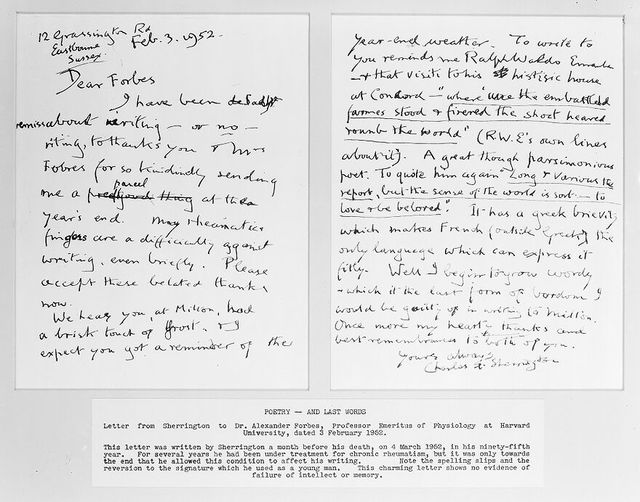 12 Grassington Rd
Eastbourne
Sussex
Feb. 3. 1952.
Dear Forbes
I have been
remiss about writing — or no —
riting, to thanks you & Mrs
Forbes for so kindindly sending
me a parcel at the
year's end. My rheumatic
fingers are a difficially against
writing, even briefly. Please
accept these belated thanks
now.
We hear you, at Milton, had
a brisk touch of frost, & I
expect you got a reminder of the
year-end weather. To write to
you reminds me Ralph Waldo
& that visit to his historic house
at Concord — "where the embattled
farmes stood & firered the shoot heared
rounb the world" (R.W.E's own lines
about it). A great though parsimonious
poet. To quote him again "Long & various the
report, but the sense of the world is sort — to
love & be belored". It has a greek brievity
which makes French (outside Greek) the
only language which can express it
fitly. Well I begin to grow wordy
& which it the last form of bordom I
would be guilty of in writing to Millton.
Once more my hearty thanks and
best remembrances to both of you.
Yours always
Charles S. Sherrington
POETRY — AND LAST WORDS
Letter from Sherrington to Dr. Alexander Forbes, Professor Emeritus of Physiology at Harvard
University, dated 3 February 1952.
This letter was written by Sherrington a month before his death, on 4 March 1952, in his ninety-fifth
year. For several years he had been under treatment for chronic rheumatism, but it was only towards
the end that he allowed this condition to affect his writing. Note the spelling slips and the
reversion to the signature which he used as a young man. This charming letter shows no evidence of
failure of intellect or memory.